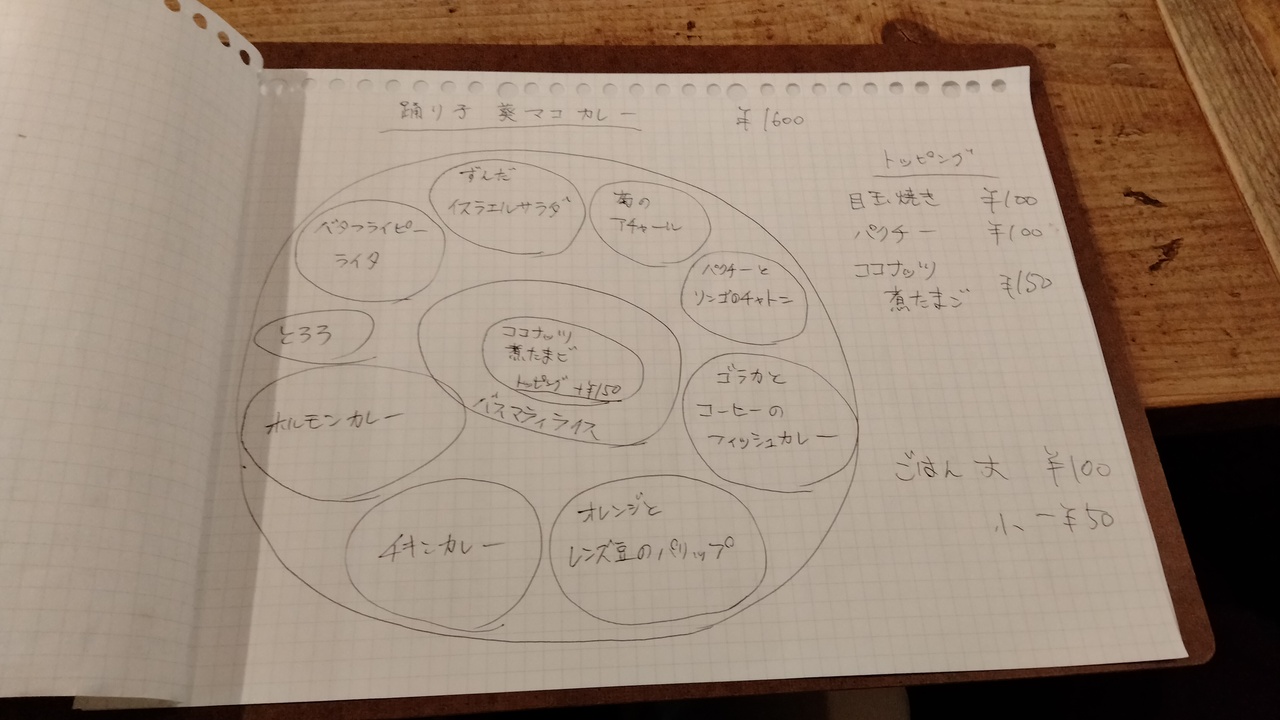 踊り子 葵マコカレー ¥1600
ずんだ
イスラエルサラダ
菊の
アチャール
バタフライピー
ライタ
パクチーと
リンゴのチャトニ
とろろ
ココナッツ
煮たまご
トッピング +¥150
バスマティライス
ゴラカと
コーヒーの
フィッシュカレー
ホルモンカレー
チキンカレー
オレンジと
レンズ豆のパリップ
トッピング
目玉焼き ¥100
パクチー ¥100
ココナッツ
煮たまご ¥150
ごはん 大 ¥100
小 -¥50